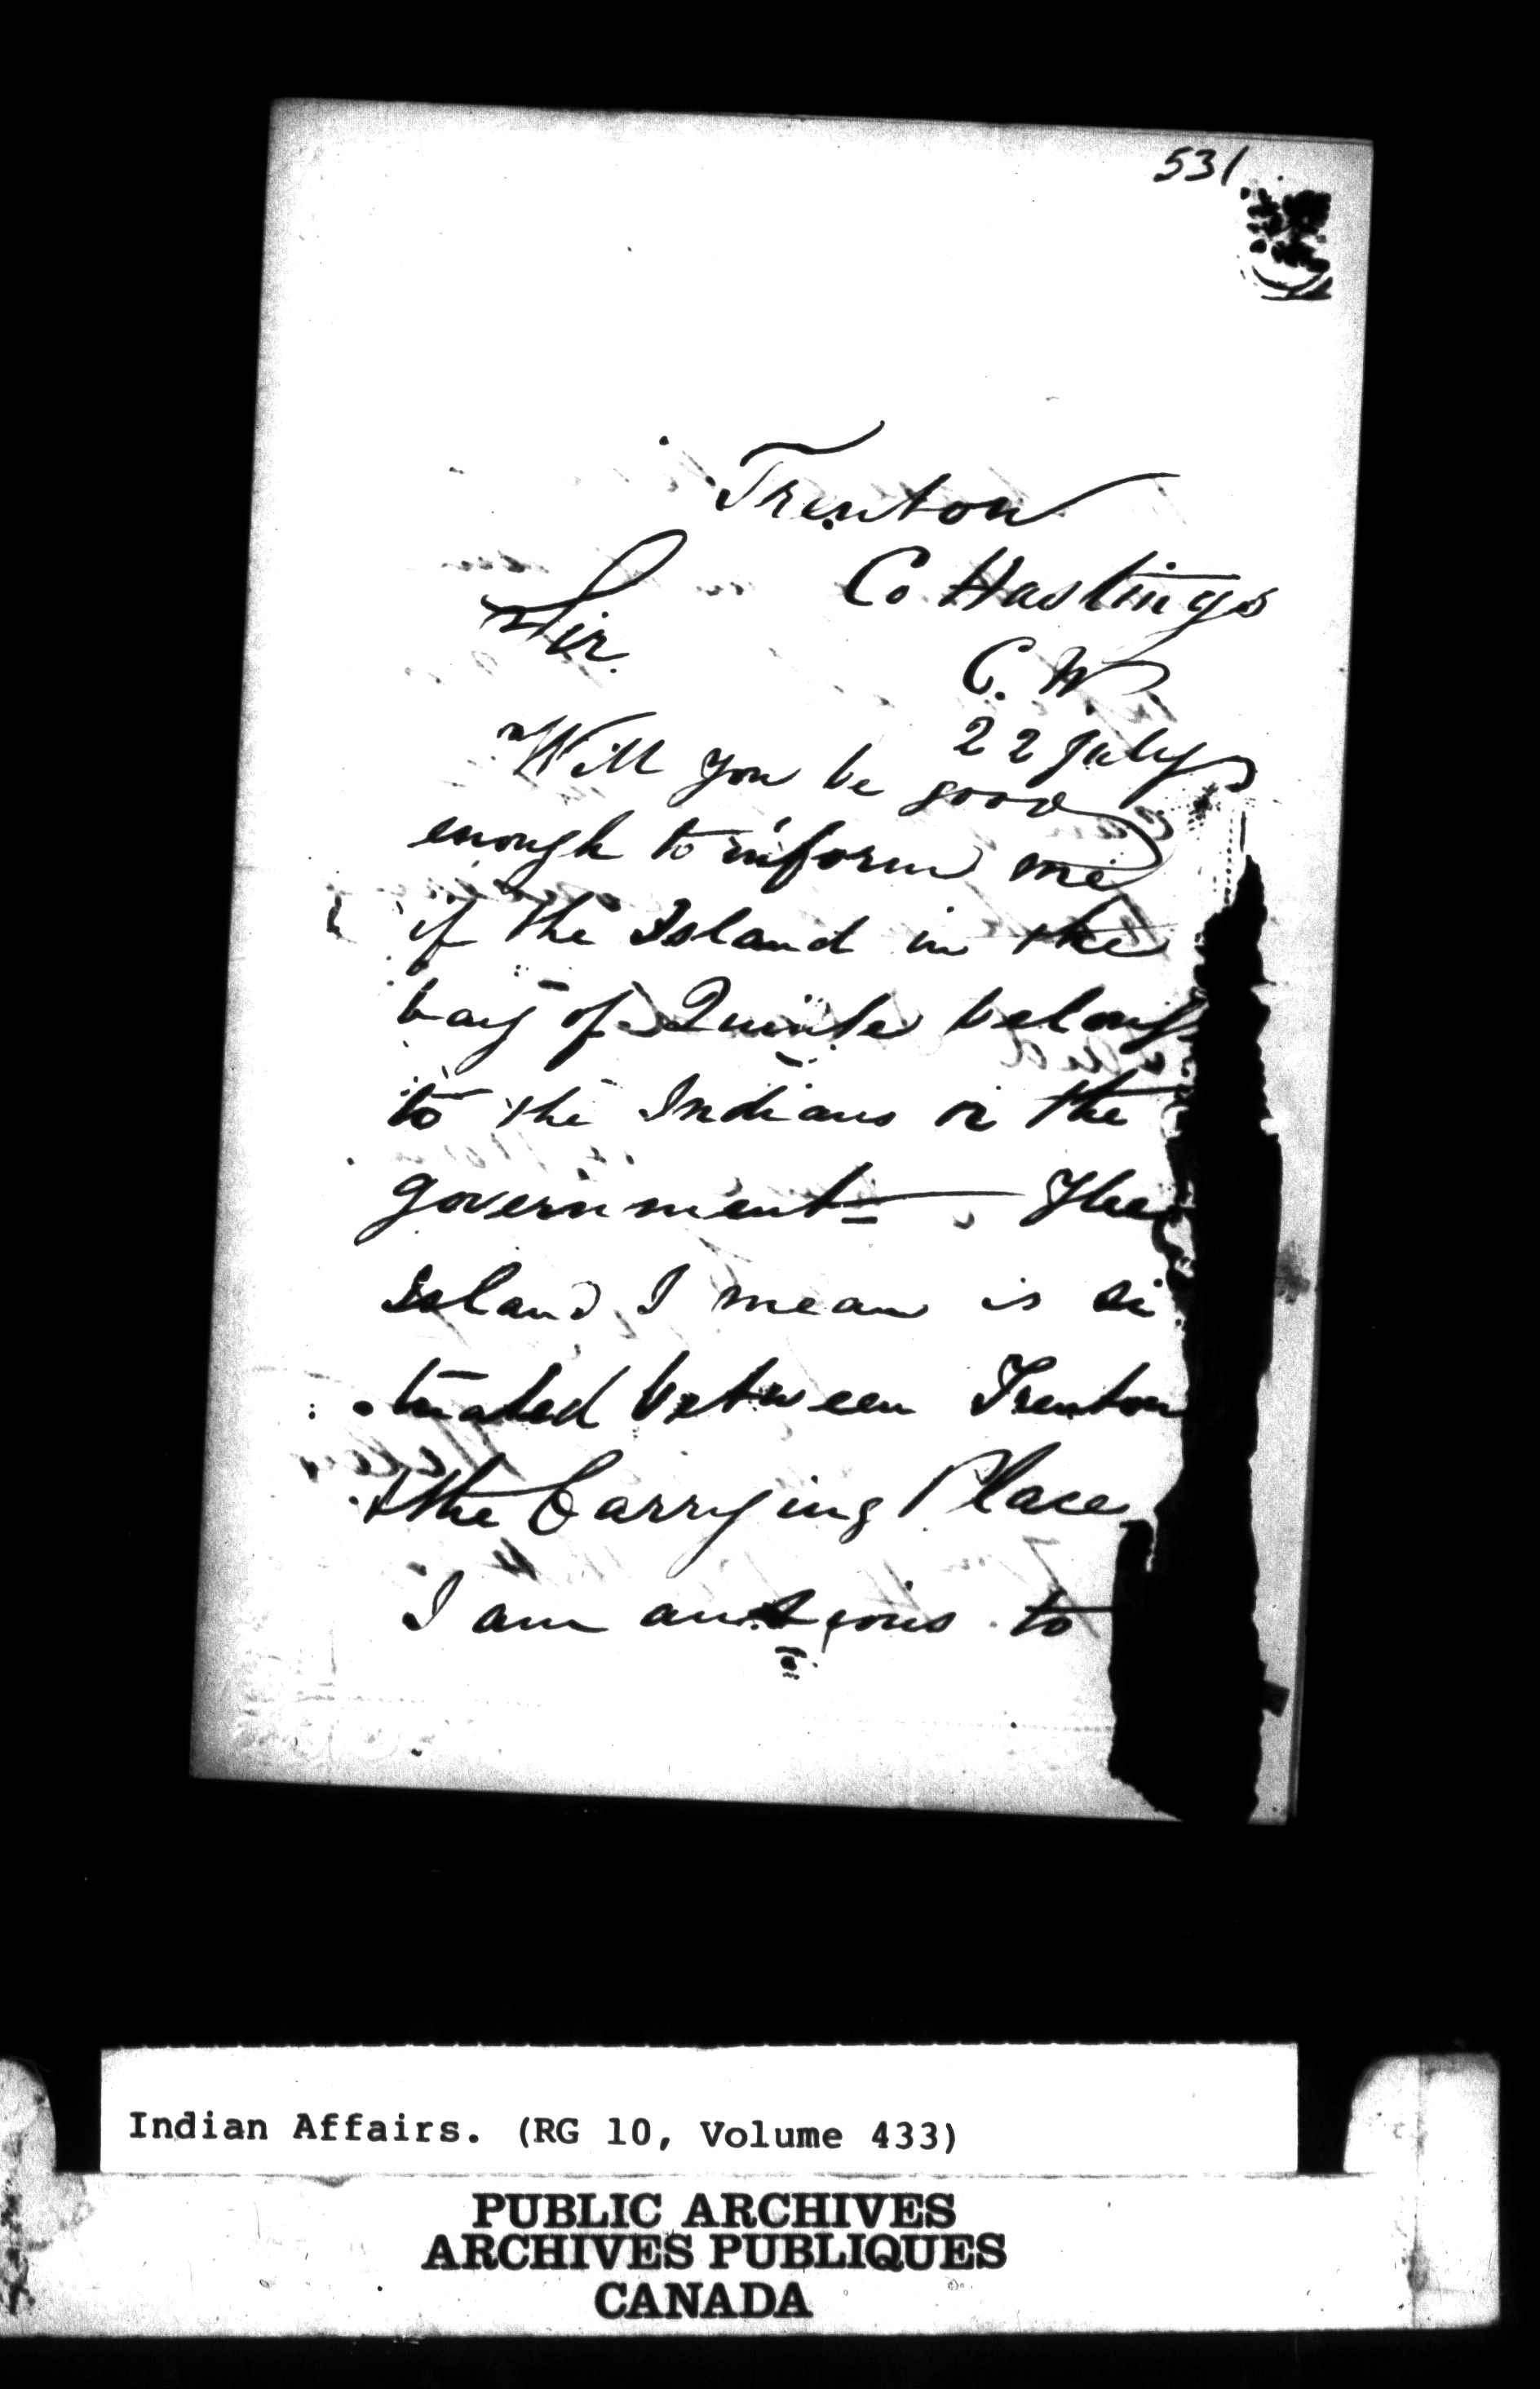 531
Trenton
Co Hastings
Sir.
C. W.
22 July
Will you be good
enough to inform me
if the Island in the
bay of Quinte belong
to the Indians or the
government — The
Island I mean is si
tuated between Trenton
& the Carrying Place
I am anxious to
Indian Affairs. (RG 10, Volume 433)
PUBLIC ARCHIVES
ARCHIVES PUBLIQUES
CANADA